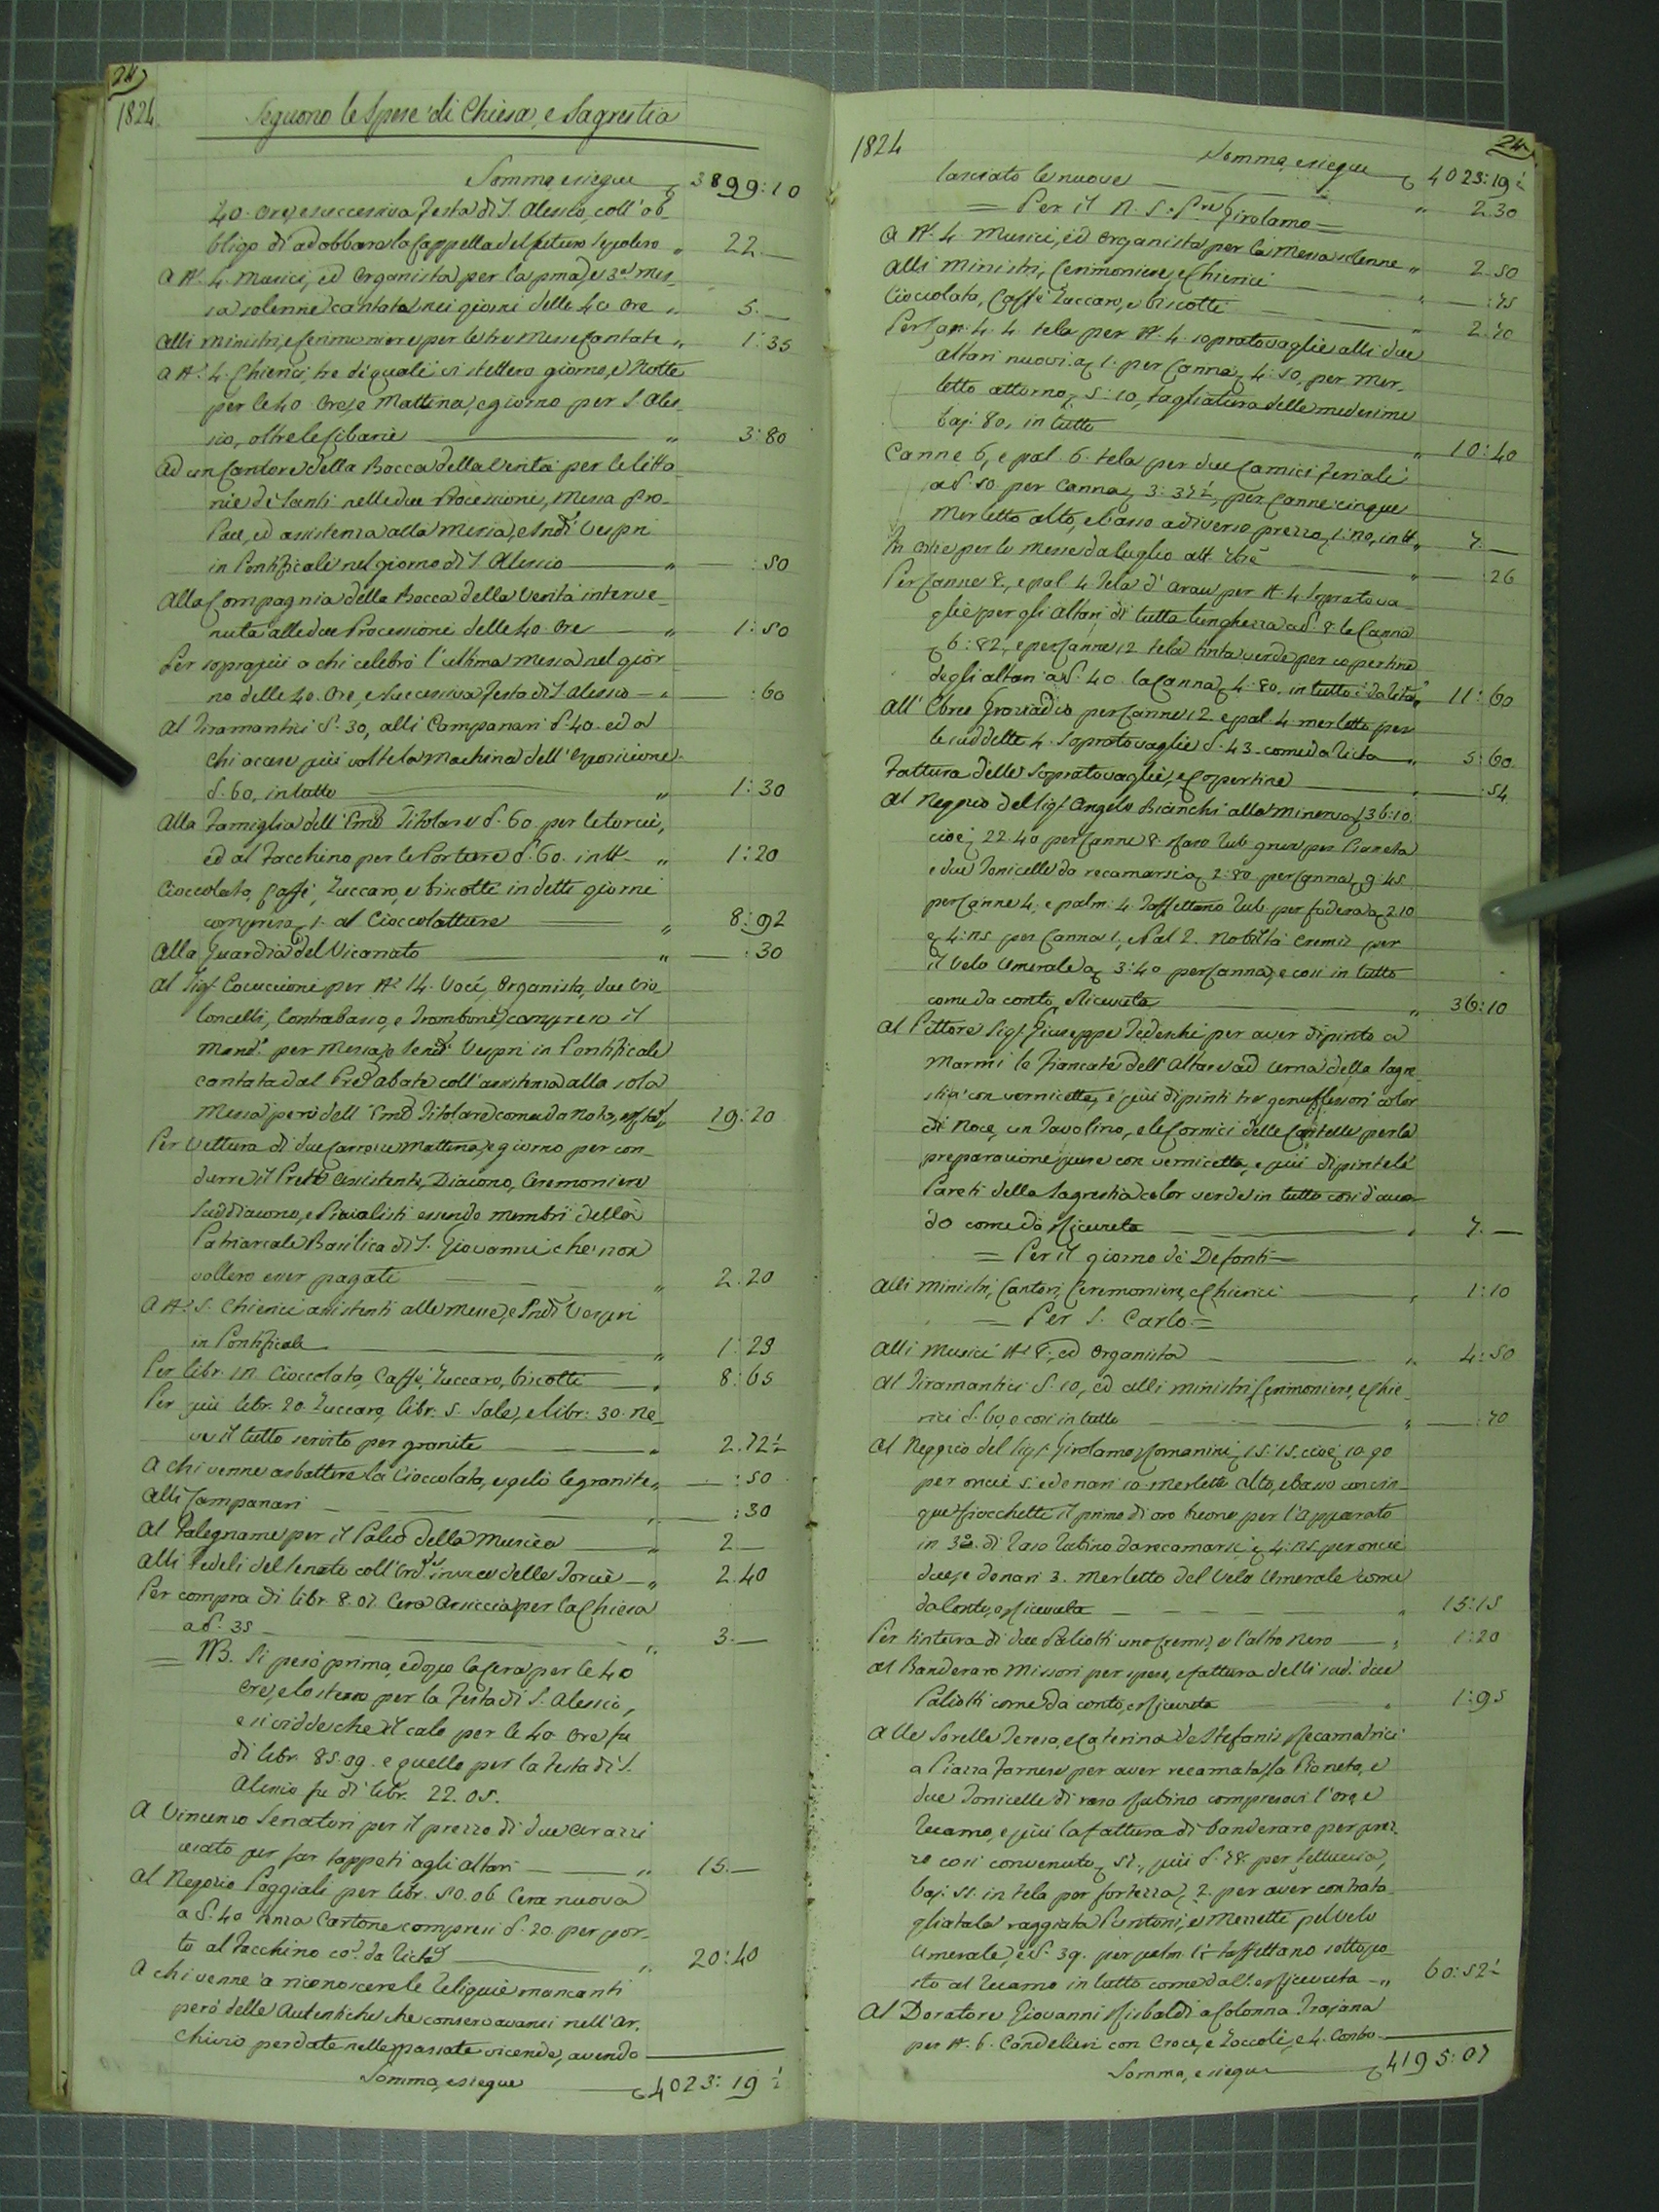 24)
1824
Seguono le Spese di Chiesa, e Sagrestia
Somma, e siegue 3899:10
40. Ore, e successiva Festa di S. Alessio, coll'ob-
bligo di addobbare la Cappella del futuro Sepolcro „ 22.—
A Nº. 4. Musici, ed Organista, per la pma, e 3ª Mes-
sa solenne cantata nei giorni delle 40 Ore „ 5.—
Alli Ministri, e Cerimoniere per le tre Messe Cantate „ 1:35
A Nº. 4. Chierici, tre de' quali vi stettero giorno, e Notte
per le 40 Ore, e Mattina, e giorno per S. Ales-
sio, oltre le Cibarie „ 3:80
Ad un Cantore della Bocca della Verità per le Litta-
nie de' Santi nelle due Processioni, Messa Pro
Pace, ed assistenza alla Messa, e Sndi Vespri
in Pontificali nel giorno di S. Alessio „ —:50
Alla Compagnia della Bocca della Verità interve-
nuta alle due Processioni delle 40. Ore „ 1:50
Per soprapiù a chi celebrò l'ultima Messa nel gior
no delle 40. Ore, e successiva Festa di S. Alessio „ —:60
Al Tiramantici S. 30, alli Campanari S. 40. ed a
chi accese più volte la Machina dell'Esposizione
S. 60, in tutto „ 1:30
Alla Famiglia dell'Emo Titolare S. 60 per le torcie,
ed al Facchino per le Portature S. 60. in tt. „ 1:20
Cioccolata, Caffè, Zuccaro, e biscotti in detti giorni
compreso 1. al Cioccolattiere „ 8:92
Alla Guardia del Vicariato „ —:30
Al Sigr. Cocuccioni per Nº 14. Voci, Organista, due Vio-
loncelli, Contrabasso, e Trombone, compreso il
Mond. per Messa, e Sendi Vespri in Pontificale
cantata dal Pred Abate coll'assistenza alla sola
Messa però dell'Emo Titolare come da Nota, 19:20
Per Vettura di due Carrozze Mattina, e giorno per con-
durre il Prete Assistente, Diacono, Ceremoniere
Suddiacono, e Pivialisti essendo membri della
Patriarcale Basilica di S. Giovanni che non
vollero esser pagati „ 2.20
A Nº. 5. Chierici assistenti alle Messe, e Sndi Vespri
in Pontificale „ 1:25
Per libr. 12. Cioccolata, Caffè, Zuccaro, biscotti „ 8:65
Per più libr. 20. Zuccaro, libr. 5. Sale, e libr: 30. Ne-
ve il tutto servito per granite „ 2.72½
A chi venne a sbattere la Cioccolata, e gelò le granite „ —:50
Alli Campanari „ —:30
Al Falegname per il Palco della Musica „ 2.—
Alli Fedeli del Senato coll'Ord. invece delle Torcie „ 2.40
Per compra di libr. 8. 07. Cera Ariccia per la Chiesa
a S. 35 „ 3.—
= NB. Si pesò prima, e dopo la Cera per le 40
Ore, e lo stesso per la Festa di S. Alessio,
e si vidde che il calo per le 40. Ore fu
di libr. 85.09. e quello per la Festa di S.
Alessio fu di libr. 22. 05.
A Vincenzo Senatori per il prezzo di due arazzi
usato per far tappeti agli altari „ 15.—
Al Negozio Poggiali per libr. 50.06 Cera nuova
a S. 40 senza Cartone compresi S. 20. per por-
to al Facchino co. da Ricta „ 20:40
A chi venne a riconoscere le Reliquie mancanti
però delle Autentiche che conservavansi nell'Ar-
chivio perdute nelle passate vicende, avendo
Somma, e siegue 4023:19½
1824
24
Somma, e siegue 4023:19½
lasciato le nuove „ 2.30
= Per il N. S. Pre Girolamo =
A Nº. 4. Musici, ed Organista per la Messa solenne „ 2.50
Alli Ministri, Cerimoniere, e Chierici „ —:75
Cioccolata, Caffè Zuccaro, e biscotti „ 2.70
Per Can. 4. 4. tela per Nº. 4. sopratovaglie alli due
altari nuovi a 1. per Canna, 4:50, per Mer-
letto attorno, 5:10, tagliatura delle medesime
baj: 80, in tutto „ 10:40
Canne 6, e pal. 6. tela per due Camici feriali
a S. 50. per Canna, 3:37½, per Canne cinque
Merletto alto, e basso a diverso prezzo, in tt „ 7.—
In Ostie per le Messe da Luglio „ —:26
Per Canne 8., e pal. 4. Tela d'Arau per Nº. 4. Sopratova-
glie per gli Altari di tutta lunghezza a S. 8. la Canna
6:82, e per Canne 12 tela tinta verde per copertine
degli altari a S. 40. la Canna, 4:80, in tutto c. da Ricta „ 11:60
All'Ebreo Graziadio per Canne 12. e pal. 4. merletto per
le suddette 4. Sopratovaglie S. 43. come da Ricta „ 5:60.
Fattura delle Sopratovaglie, e Copertine „ —:54
Al Negozio del Sigr. Angelo Bianchi alla Minerva 36:10.
cioè 22.40 per Canne 8. raso Rub. greve per Pianeta
e due Tonicelle da recamarsi a 2:80. per Canna, 9:45
per Canne 4. e palm: 4. Taffettano Rub. per fodera a 2.10
e 4:25 per Canna 1, e Pal. 2. Nobiltà Cremisi per
il Velo Umerale a 3:40 per Canna, e così in tutto
come da conto, e Ricevuta „ 36:10
Al Pittore Sigr. Giuseppe Tedeschi per aver dipinto a
Marmi le Fiancate dell'Altare ad urna della Sagre-
stia con vernicetta, e più dipinti tre genuflessori color
di Noce, un Tavolino, e le Cornici delle Cartelle per la
preparazione pure con vernicetta, e più dipinte le
Pareti della Sagrestia color verde in tutto così d'accor-
do come da Ricevuta „ 7.—
= Per il giorno de' Defonti =
Alli Ministri, Cantori, Ceremoniere, e Chierici „ 1:10
= Per S. Carlo =
Alli Musici Nº 8., ed Organista „ 4:50
Al Tiramantici S. 10, ed alli Ministri Cerimoniere, e Chie-
rici S. 60, e così in tutto „ —:70
Al Negozio del Sigr. Girolamo Romanini 15:15. cioè 10.90
per oncie 5. e denari 10. Merletti alto, e basso con cin-
que fiocchetti il primo di oro buono per l'Apparato
in 3º. di Raso Rubino da recamarsi, e 4:25 per oncie
due, e denari 3. Merletto del Velo Umerale come
da Conto, e Ricevuta „ 15:15
Per tintura di due Paliotti uno Cremisi, e l'altro Nero „ 1:20
Al Banderaro Missori per spese, e fattura delli sudi. due
Paliotti come da conto, e Ricevuta „ 1:95
Alle Sorelle Teresa, e Caterina de Stefanis Recamatrici
a Piazza Farnese per aver recamata la Pianeta, e
due Tonicelle di raso Rubino compresovi l'oro, e
Recamo, e più la fattura di banderaro per prez-
zo così convenuto 57., più S. 78. per fettuccia,
baj. 55. in tela por fortezza, 2. per aver contrata-
gliata la raggiata Puntoni, e Merletti pel Velo
Umerale, e S. 39. per palm. Taffettano sottopo-
sto al Recamo in tutto come dalla Ricevuta „ 60:52½
Al Doratore Giovanni Risbaldi a Colonna Trajana
per Nº. 6. Candelieri con Croce, e Zoccoli, e 4. Cocto
Somma, e siegue 4195:07